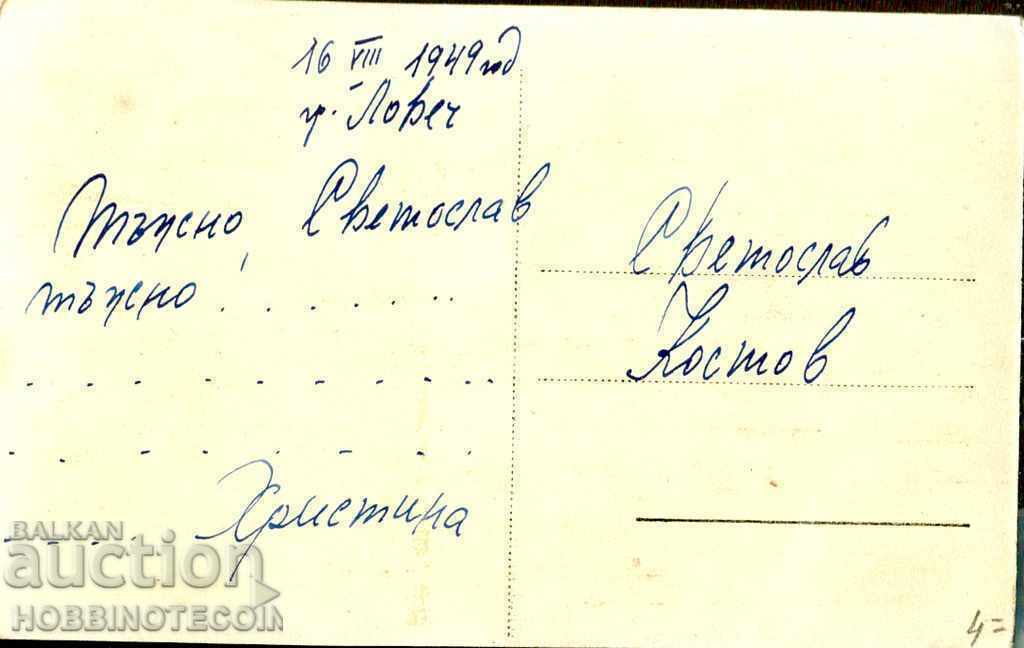 16 VIII 1949 год
гр. Ловеч
Тъжно, Светослав
тъжно! . . . . . .
Христина
Светослав
Костов
4=
BALKAN
auction
HOBBINOTECOIN